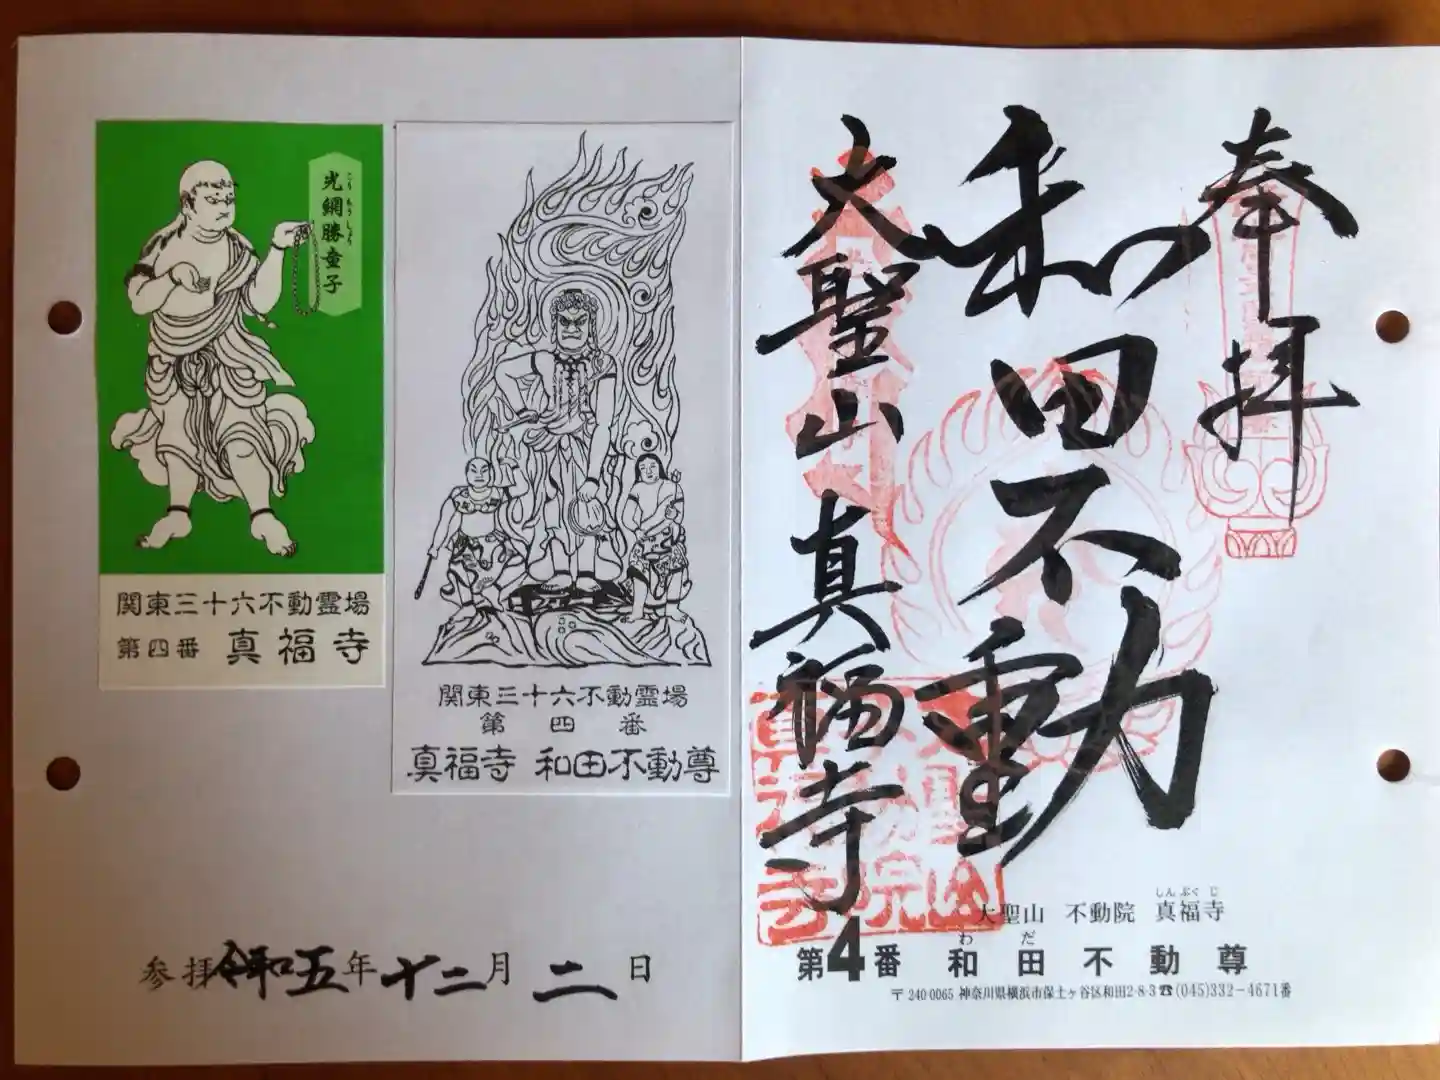 奉拝
和田不動
大聖山 真福寺
大聖山 不動院 真福寺
しんぷくじ
第4番 和田不動尊
わだ
〒240-0065 神奈川県横浜市保土ヶ谷区和田2-8-3☎(045)332-4671番
光網勝童子
こうもうしょう
関東三十六不動霊場
第四番 真福寺
関東三十六不動霊場
第四番
真福寺 和田不動尊
参拝令和五年十二月二日